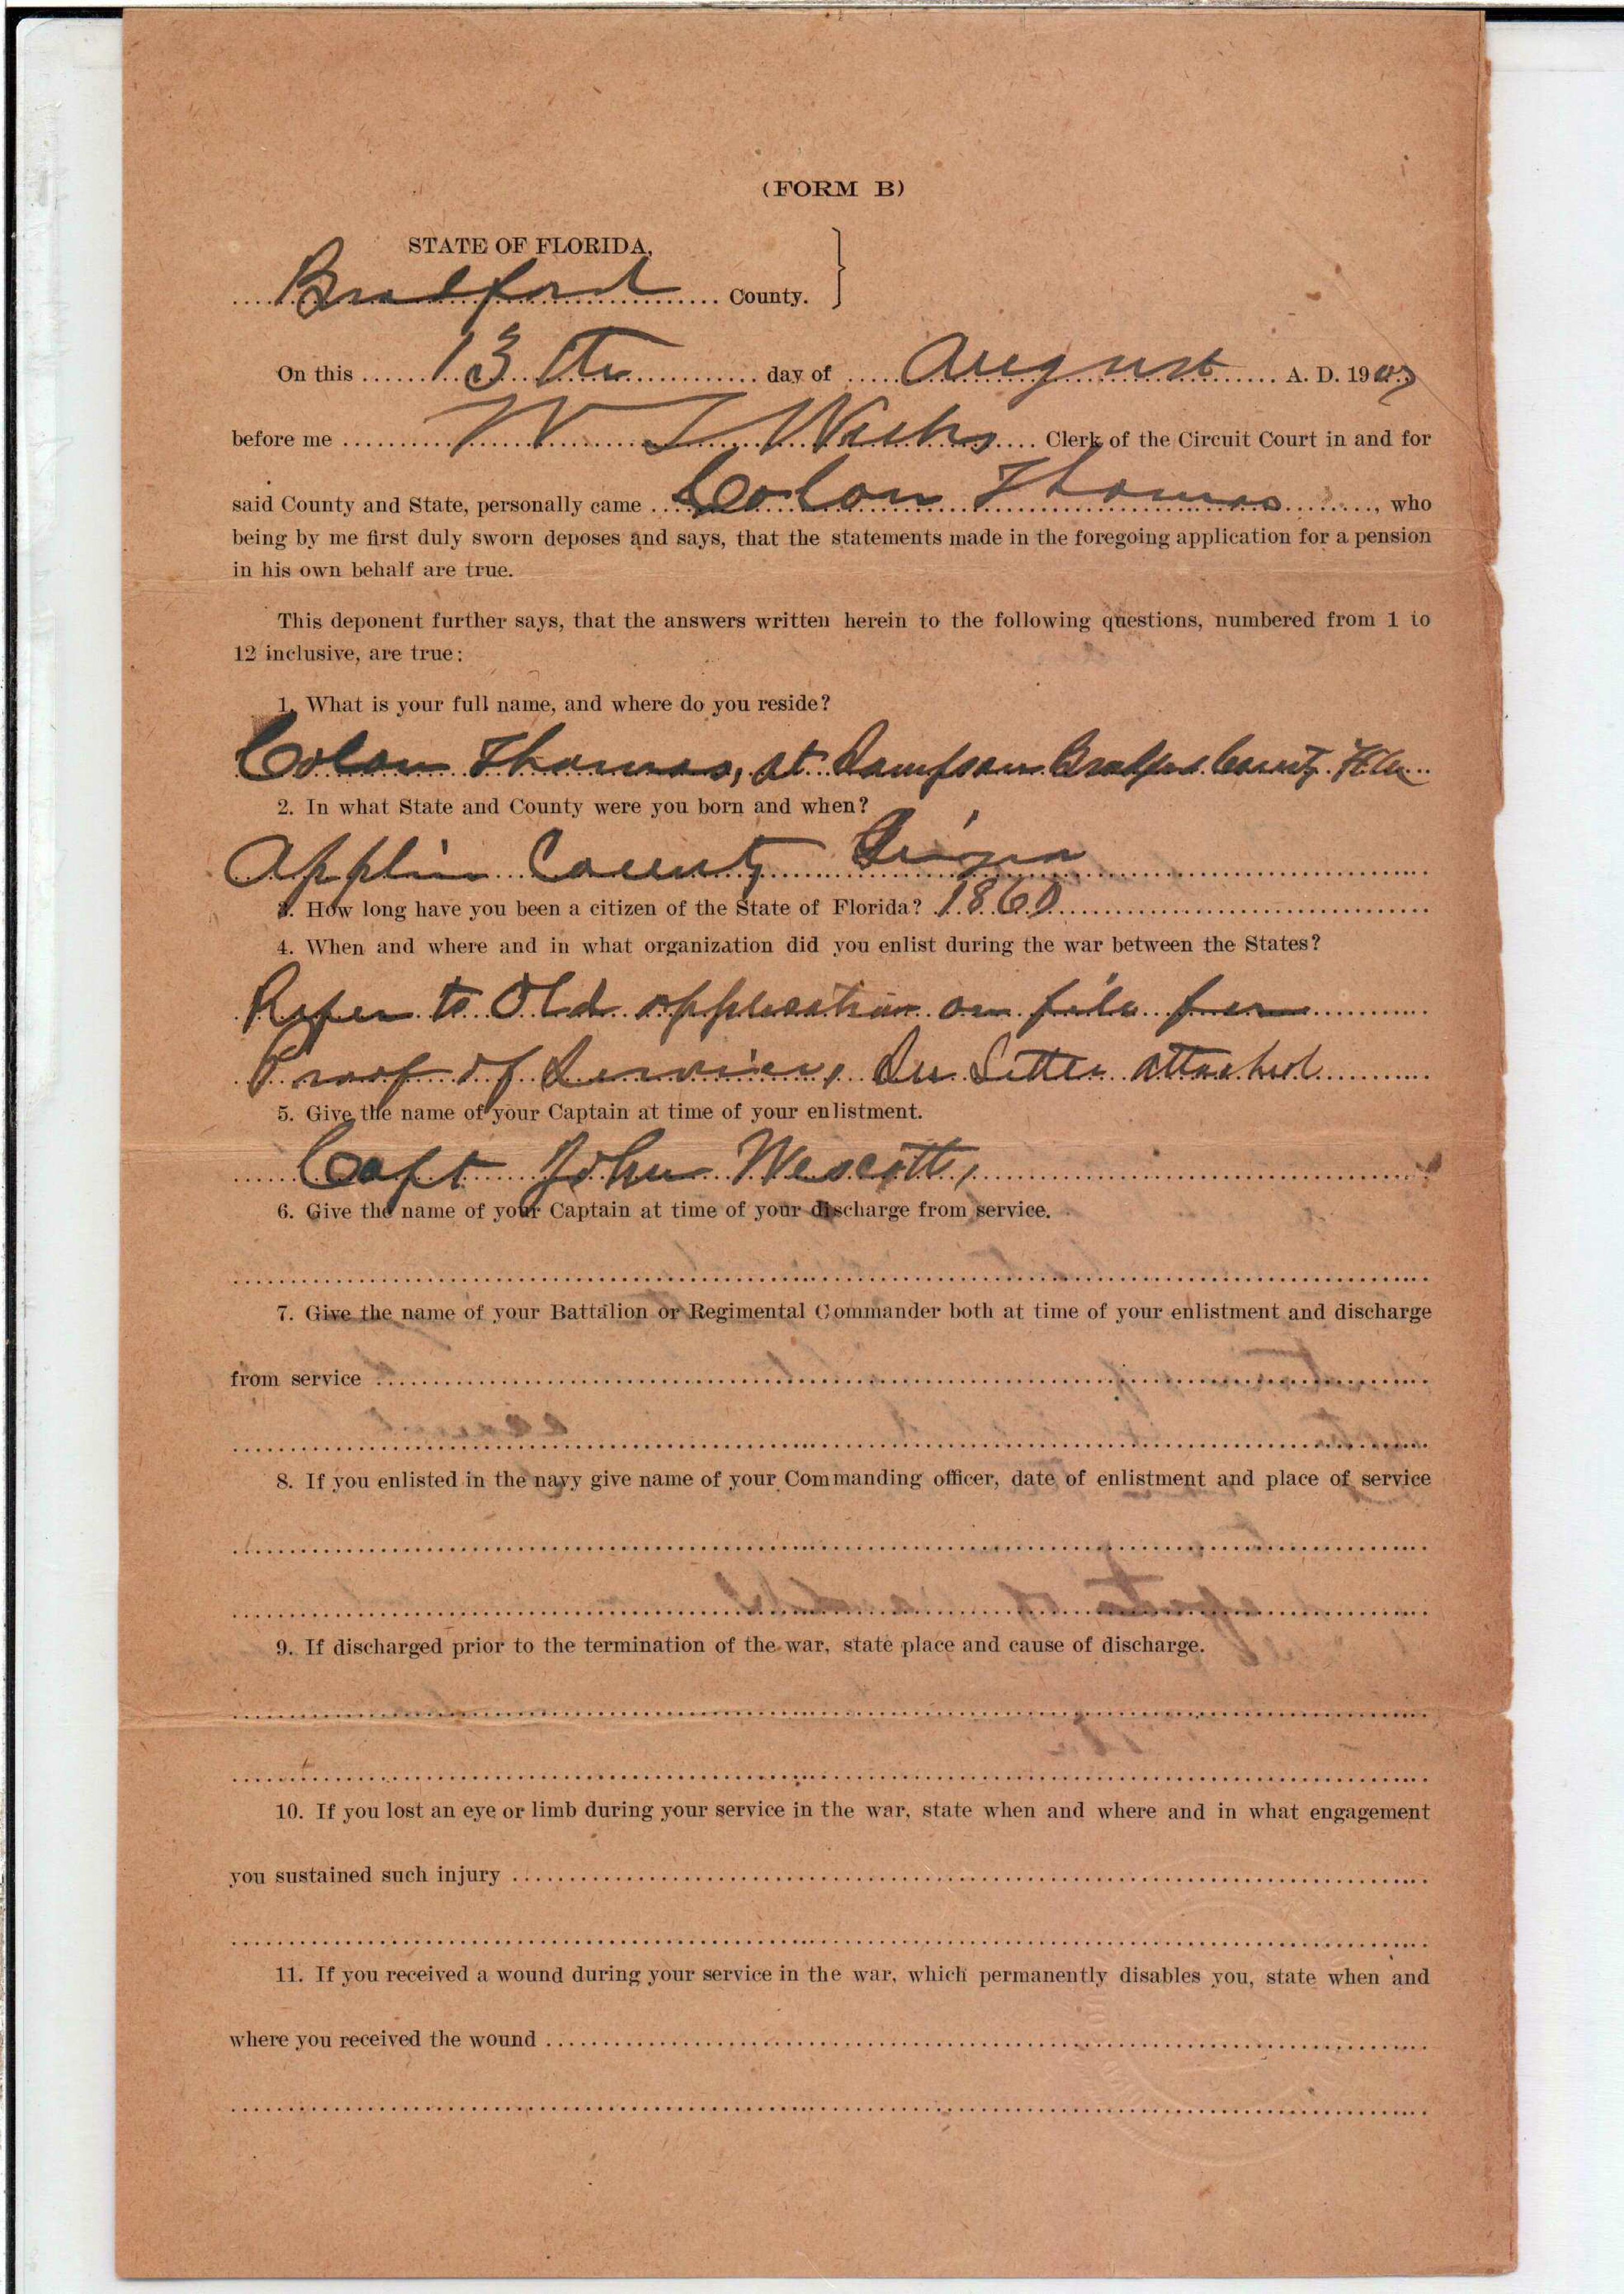 (FORM B)
STATE OF FLORIDA,
Bradford County.
On this 13th day of August A. D. 1907
before me W J Clerk of the Circuit Court in and for
said County and State, personally came Colon Thomas, who
being by me first duly sworn deposes and says, that the statements made in the foregoing application for a pension
in his own behalf are true.
This deponent further says, that the answers written herein to the following questions, numbered from 1 to
12 inclusive, are true:
1. What is your full name, and where do you reside?
Colon Thomas, at Sampson Bradford County Fla
2. In what State and County were you born and when?
Applin County
3. How long have you been a citizen of the State of Florida? 1860
4. When and where and in what organization did you enlist during the war between the States?
Refer to Old application on file for
Proof of Service, See Letter attached
5. Give the name of your Captain at time of your enlistment.
Capt John Wescott,
6. Give the name of your Captain at time of your discharge from service.
7. Give the name of your Battalion or Regimental Commander both at time of your enlistment and discharge
from service
8. If you enlisted in the navy give name of your Commanding officer, date of enlistment and place of service
9. If discharged prior to the termination of the war, state place and cause of discharge.
10. If you lost an eye or limb during your service in the war, state when and where and in what engagement
you sustained such injury
11. If you received a wound during your service in the war, which permanently disables you, state when and
where you received the wound